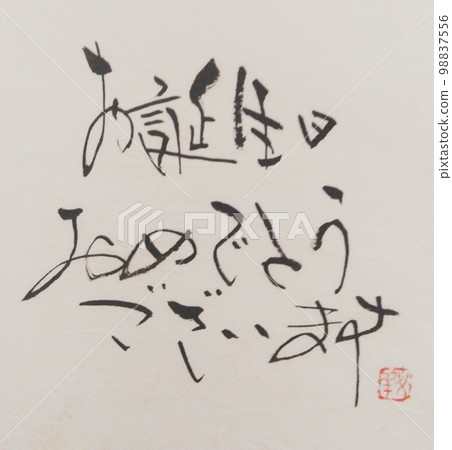 お誕生日
おめでとう
ございます
PIXTA
98837556